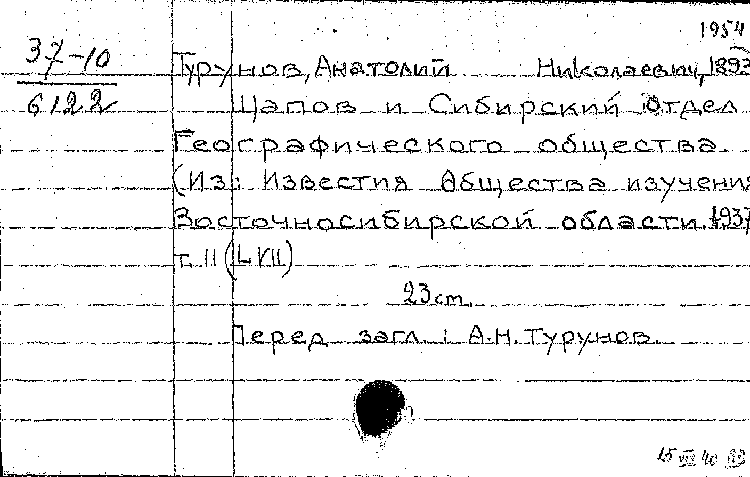 1954
37-10
6122
Турунов, Анатолий Николаевич, 1893
Щапов и Сибирский отдел
Географического общества.
(Из: Известия Общества изучения
Восточносибирской области. 1937
т. II (LVII)
23 ст.
Перед загл.: А.Н. Турунов.
15 VII 40